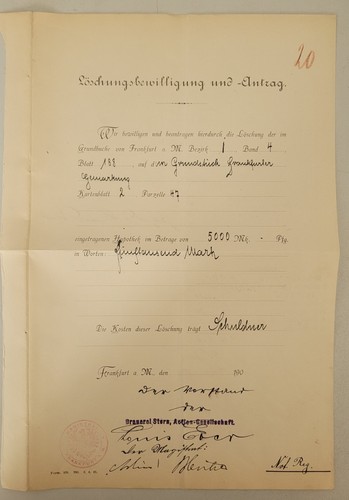 20
Löschungsbewilligung und -Antrag.
Wir bewilligen und beantragen hierdurch die Löschung der im
Grundbuche von Frankfurt a. M. Bezirk 1 Band 4
Blatt 188 auf dem Grundstück Frankfurter
Gemarkung
Kartenblatt 2 Parzelle 47
eingetragenen Hypothek im Betrage von 5000 Mk. - Pfg.
in Worten: Fünftausend Mark
Die Kosten dieser Löschung trägt Schuldner
Frankfurt a. M., den 190
Der Vorstand
der
Brauerei Stern, Actien-Gesellschaft.
Louis
Der Magistrat:
Not. Reg.